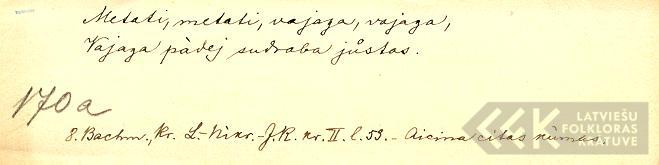 Metati, metati, vajaga, vajaga,
Vajaga pàdej sudraba jůstas.
170a
8. Bachm., Kr. L.-Nikr.-J.R. nr. II. l. 53. - Aicina citas
LATVIEŠU
FOLKLORAS
KRĀTUVE